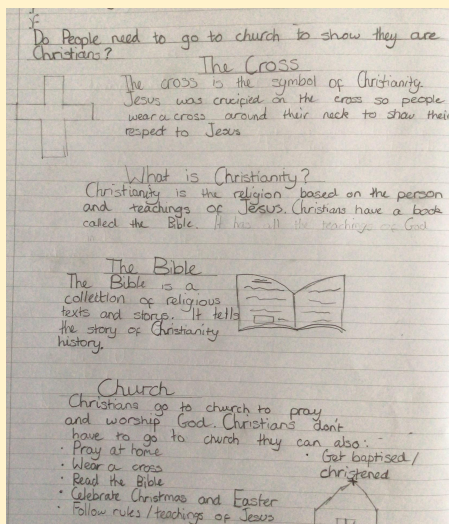 Do People need to go to church to show they are
Christians?
The Cross
The cross is the symbol of Christianity.
Jesus was crucipied on the cross so people
wear a cross around their neck to show their
respect to Jesus
What is Christianity?
Christianity is the religion based on the person
and teachings of Jesus. Christians have a book
called the Bible. It has all the teachings of God
The Bible
The Bible is a
collection of religious
texts and storys. It tells
the story of Christianity
history.
Church
Christians go to church to pray
and worship God. Christians don't
have to go to church they can also:
· Pray at home
· Wear a cross
· Read the Bible
· Celebrate Christmas and Easter
· Follow rules/teachings of Jesus
· Get baptised/
christened